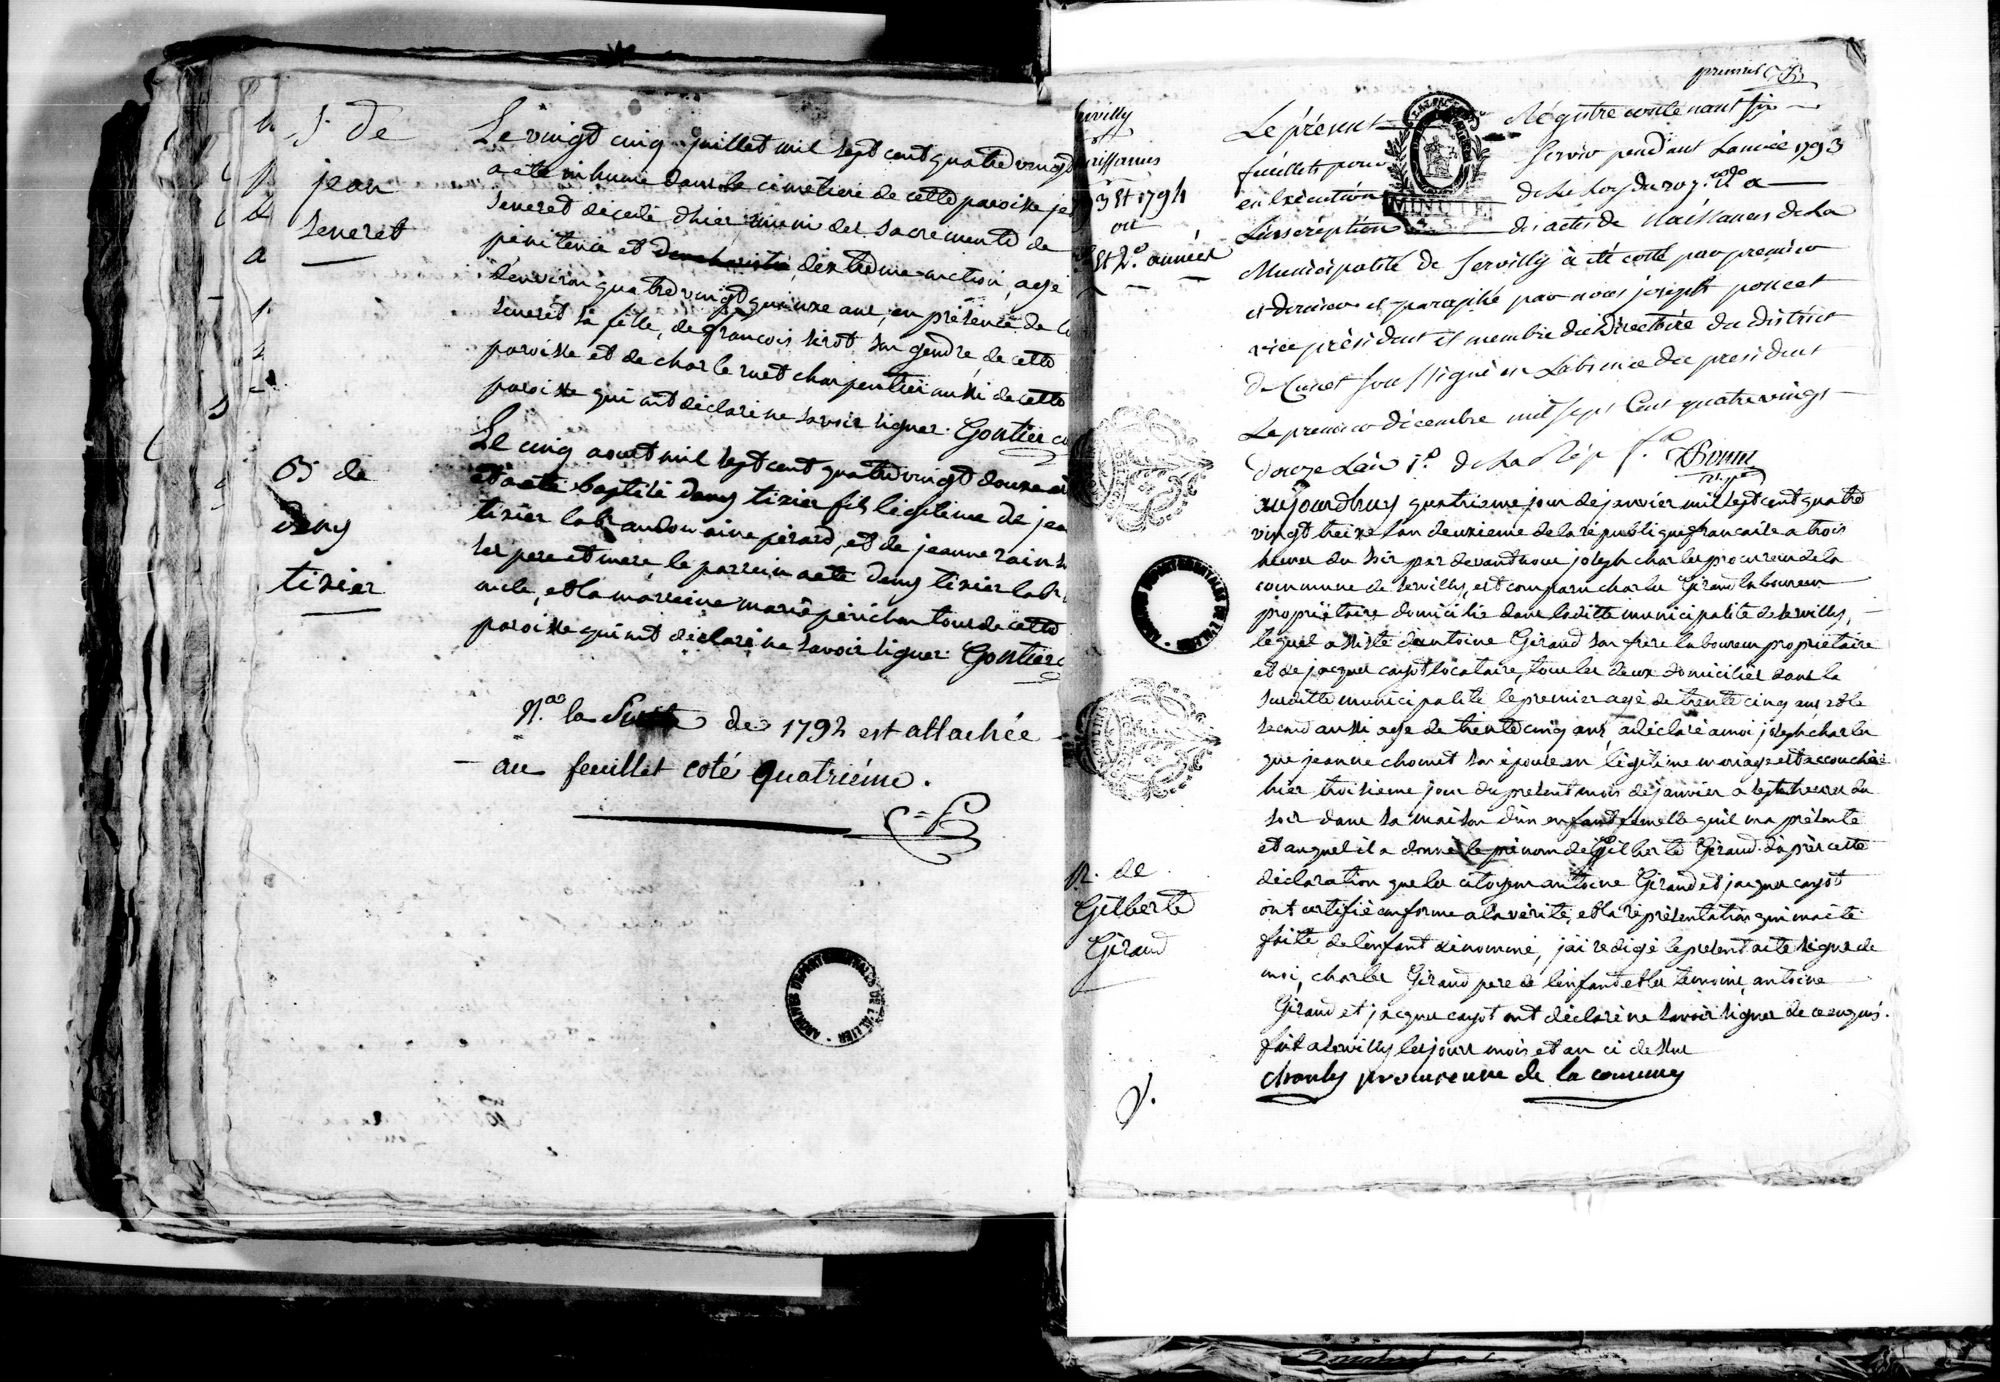 S. de
jean
seneret
Le vingt cinq juillet mil sept cent quatre vingt
a été inhumé dans le cimetiere de cette paroisse
seneret décédé d'hier muni des sacrements de
pénitence et d'extreme onction, agé
d'environ quatre vingt quinze ans, en présence de
seneret sa fille, de françois sirot son gendre de cette
paroisse et de charle ruet charpentier aussi de cette
paroisse qui ont déclaré ne savoir signer. Gontier
B. de
deny
tixier
Le cinq aout mil sept cent quatre vingt douze
et a été baptisé deny tixier fils légitime de
tixier labr au domaine pérard, et de jeanne
ses pere et mere le parrein a été deny tixier lab
oncle, et la marreine marie périchon tous de cette
paroisse qui ont déclaré ne savoir signer. Gontier
Nta la Suitte de 1792 est attachée
au feuillet coté quatriéme.
premier
Servilly
naissances
1793 et 1794
ou
et 2e année
Le présent Régistre contenant six
feuillets pour Servir pendant L'année 1793
en Exécution de la Loy du 20 7bre a
L'inscription des actes de Naissances de La
Municipalité de Servilly à été cotté par premier
et dernier et paraphé par nous joseph poncet
vice président et membre du Directoire du district
de Cusset soussigné en L'absence du president
Le premier décembre mil sept Cent quatre vingt
douze L'an 1er de La Rép. f.se
MINUTE
aujourd'huy quatrieme jour de janvier mil sept cent quatre
vingt treize l'an deuxieme de la république francaise a trois
heures du soir par devant nous joseph charles procureur de la
commune de servilly, est comparu charles Giraud laboureur
propriétaire domicilié dans la ditte municipalité de servilly,
lequel assisté d'antoine Giraud son frère laboureur propriétaire
et de jacques cayot locataire, tous les deux domiciliés dans la
susditte municipalité le premier agé de trente cinq ans et le
second aussi agé de trente cinq ans, a déclaré a moi joseph charles
que jeanne chomet son épouse en légitime mariage est accouchée
hier troisieme jour du présent mois de janvier a sept heures du
soir dans sa maison d'un enfant femelle qu'il m'a présenté
et auquel il a donné le prénom de Gilberte Giraud. d'après cette
déclaration que les citoyens antoine Giraud et jacques cayot
ont certifié conforme a la vérité, et la représentation qui m'a été
faite de l'enfant dénommé, j'ai redigé le présent acte signé de
moi, charles Giraud pere de l'enfant et les temoins, antoine
Giraud et jacques cayot ont déclaré ne savoir signer de ce enquis.
fait a servilly les jours mois et an ci dessus
charles procureur de la commune
N. de
Gilberte
Giraud
V.
ARCHIVES DEPARTEMENTALES DE L'ALLIER
ARCHIVES DEPARTEMENTALES DE L'ALLIER